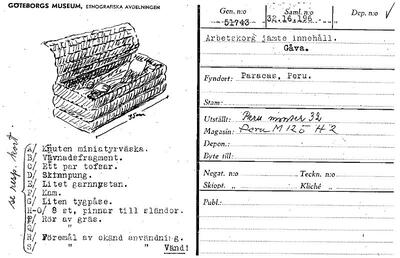 GÖTEBORGS MUSEUM, ETNOGRAFISKA AVDELNINGEN
35mm
se resp. kort.
A/ Knuten miniatyrväska.
B/ Vävnadefragment.
C/ Ett par tofsar.
D/ Skinnpung.
E/ Litet garnnystan.
F/ Kam.
G/ Liten tygpåse.
H-O/ 8 st. pinnar till sländor.
P/ Rör av gräs.
Q/ "
R/ Föremål av okänd användning.
S/ " " Vänd!
Gen. n:o Saml. n:o Dep. n:o
51743 32.16.196
Arbetskorg jämte innehåll.
Gåva.
Fyndort: Paracas, Peru.
Stam:
Utställt: Peru monter 32
Magasin: Peru M 120 H 2
Depon.:
Byte till:
Negat. n:o Teckn. n:o
Skiopt. n:o Kliché
Publ.: